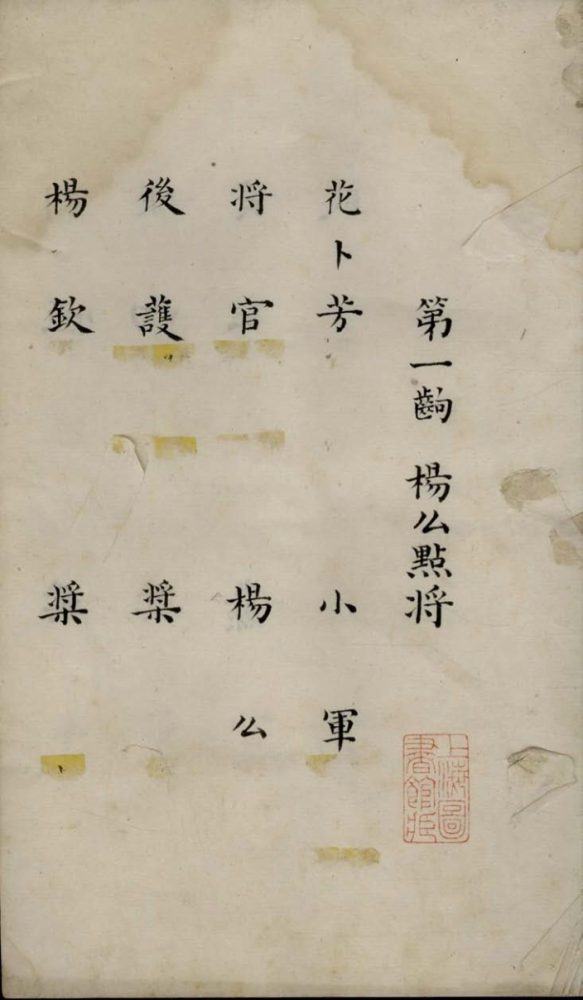 第一齣 楊么點将
花卜芳 小軍
将官 楊么
後䕶 槳
楊欽 槳
上海圖書館藏